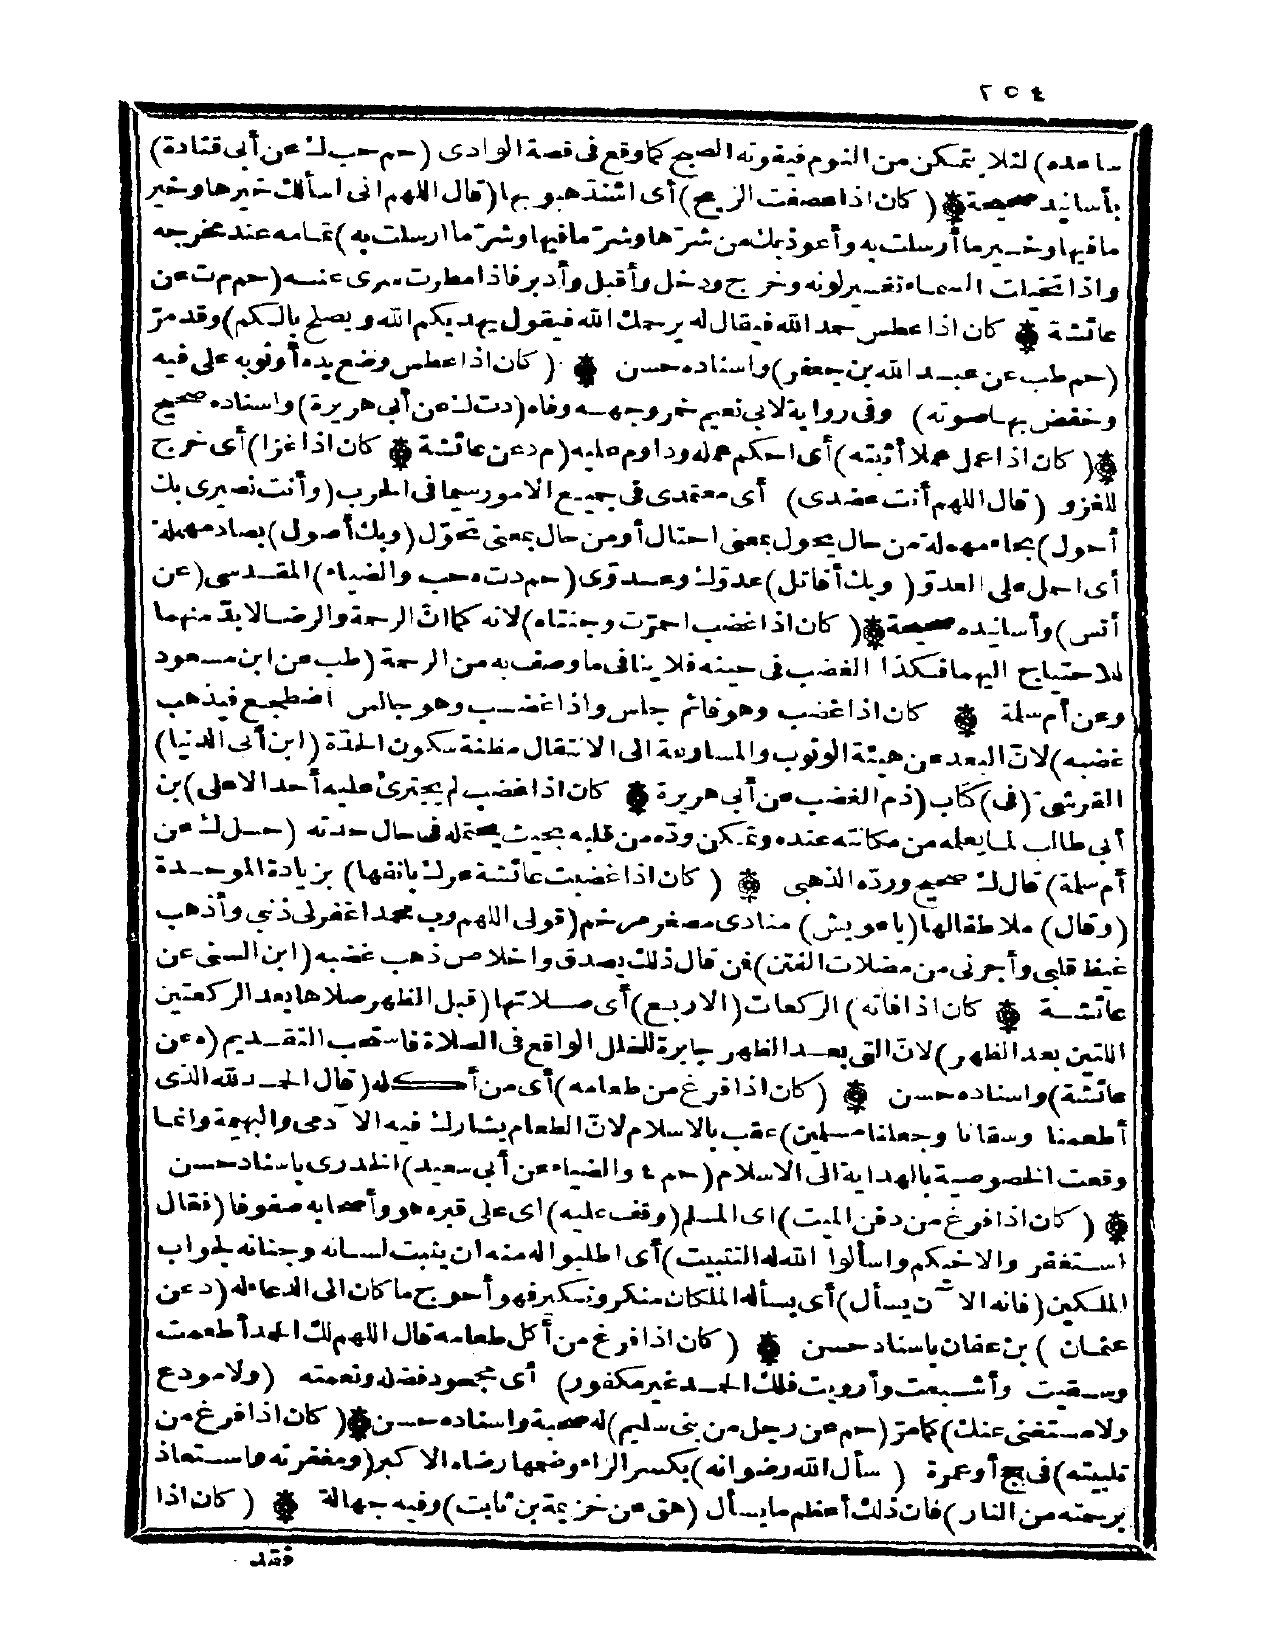 ٢٥٤
ساعده) لئلا يتمكن من النوم فيفوته الصبح كما وقع فى قصة الوادى (حم حب ك عن أبى قتادة)
بأسانيد صحيحة (كان اذا عصفت الريح) أى اشتد هبوبها (قال اللهم انى اسألك خيرها وخير
ما فيها وخير ما أرسلت به وأعوذ بك من شرّها وشرّ ما فيها وشرّ ما ارسلت به) تمامه عند مخرجه
واذا تخيلت السماء تغير لونه وخرج ودخل وأقبل وأدبر فاذا مطرت سرى عنه (حم م ت عن
عائشة كان اذا عطس حمد الله فيقال له يرحمك الله فيقول يهديكم الله ويصلح بالكم) وقد مرّ
(حم طب عن عبد الله بن جعفر) واسناده حسن (كان اذا عطس وضع يده أو ثوبه على فيه
وخفض بها صوته) وفى رواية لابى نعيم خمر وجهه وفاه (دت ك عن أبى هريرة) واسناده صحيح
(كان اذا عمل عملا أثبته) أى احكم عمله وداوم عليه (م د عن عائشة كان اذا غزا) أى خرج
للغزو (قال اللهم أنت عضدى) أى معتمدى فى جميع الامور سيما فى الحرب (وأنت نصيرى بك
أحول) بحاء مهملة من حال يحول بمعنى احتال أو من حال بمعنى تحوّل (وبك أصول) بصاد مهملة
أى احمل على العدوّ (وبك أقاتل) عدوّك وعدوّى (حم دت ه حب والضياء) المقدسى (عن
أنس) وأسانيده صحيحة (كان اذا غضب احمرّت وجنتاه) لانه كما انّ الرحمة والرضا لا بدّ منهما
للاحتياج اليهما فكذا الغضب فى حينه فلا ينافى ما وصف به من الرحمة (طب عن ابن مسعود
وعن أم سلمة كان اذا غضب وهو قائم جلس واذا غضب وهو جالس اضطجع فيذهب
غضبه) لانّ البعد عن هيئة الوثوب والمساوعة الى الانتقال مظنة سكون الحدّة (ابن أبى الدنيا)
القرشىّ (فى) كتاب (ذم الغضب عن أبى هريرة كان اذا غضب لم يجترئ عليه أحد الا على) بن
أبى طالب لما يعلمه من مكانته عنده وتمكن ودّه من قلبه بحيث يحتمله فى حال حدته (حل ك عن
أم سلمة) قال ك صحيح وردّه الذهبى (كان اذا غضبت عائشة عرك بانفها) بزيادة الموحدة
(وقال) ملاطفا لها (يا عويش) منادى مصغر مرخم (قولى اللهم رب محمد اغفر لى ذنبى وأذهب
غيظ قلبى وأجرنى من مضلات الفتن) فمن قال ذلك بصدق واخلاص ذهب غضبه (ابن السنى عن
عائشة كان اذا فاته) الركعات (الاربع) أى صلاتها (قبل الظهر صلاها بعد الركعتين
اللتين بعد الظهر) لانّ التى بعد الظهر جابرة للخلل الواقع فى الصلاة فاستحب التقديم (ه عن
عائشة) واسناده حسن (كان اذا فرغ من طعامه) أى من أكله (قال الحمد لله الذى
أطعمنا وسقانا وجعلنا مسلمين) عقب بالاسلام لانّ الطعام يشارك فيه الآدمى والبهيمة وانما
وقعت الخصوصية بالهداية الى الاسلام (حم ٤ والضياء عن أبى سعيد) الخدرى باسناد حسن
(كان اذا فرغ من دفن الميت) اى المسلم (وقف عليه) اى على قبره هو وأصحابه صفوفا (فقال
استغفروا لاخيكم واسألوا الله له التثبيت) أى اطلبوا له منه ان يثبت لسانه وجنانه لجواب
الملكين (فانه الآن يسأل) أى يسأله الملكان منكر ونكير فهو أحوج ما كان الى الدعاء له (د عن
عثمان) بن عفان باسناد حسن (كان اذا فرغ من أكل طعامه قال اللهم لك الحمد أطعمت
وسقيت وأشبعت وأرويت فلك الحمد غير مكفور) أى مجحود فضله ونعمته (ولا مودع
ولا مستغنى عنك) كما مرّ (حم عن رجل من بنى سليم) له صحبة واسناده حسن (كان اذا فرغ من
تلبيته) فى حج أو عمرة (سأل الله رضوانه) بكسر الراء وضمها رضاه الاكبر (ومغفرته واستعاذ
برحمته من النار) فان ذلك أعظم ما يسأل (هق عن خزيمة بن ثابت) وفيه جهالة (كان اذا
فقد